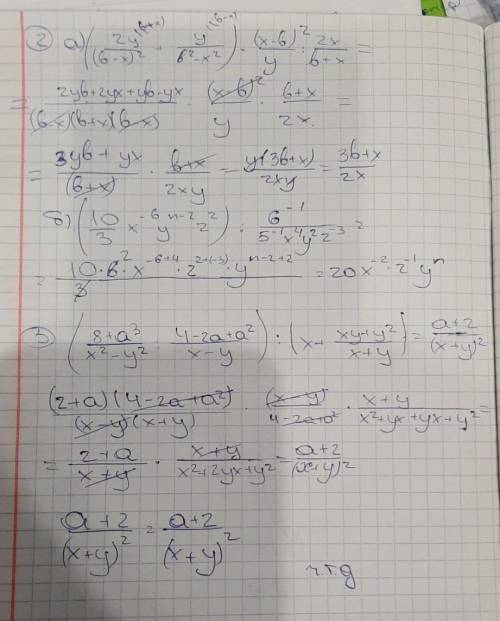 2) а) (2y^(б+x)/(б-x)² + y^(б-x)/(б²-x²)) · (x-б)²/y : 2x/(б+x) =
= (2yб+2yx+yб-yx)/((б-x)(б+x)(б-x)) · (x-б)²/y · (б+x)/2x =
= (3yб+yx)/(б+x) · (б+x)/2xy = y(3б+x)/2xy = (3б+x)/2x
б) (10/3 x⁻⁶ y^(n-2) z²) : 6⁻¹/(5⁻¹x⁴y²z⁻³) =
= (10·6·2 x^(-6+4) · z^(2+(-3)) · y^(n-2+2))/3 = 20x⁻² · z⁻¹ yⁿ
3) ((8+a³)/(x²-y²) : (4-2a+a²)/(x-y)) : (x + (xy+y²)/(x+y)) = (a+2)/(x+y)²
(2+a)(4-2a+a²)/((x-y)(x+y)) · (x-y)/(4-2a+a²) · (x+y)/(x²+yx+yx+y²) =
= (2+a)/(x+y) · (x+y)/(x²+2yx+y²) = (a+2)/(x+y)²
(a+2)/(x+y)² = (a+2)/(x+y)²
ч.т.д